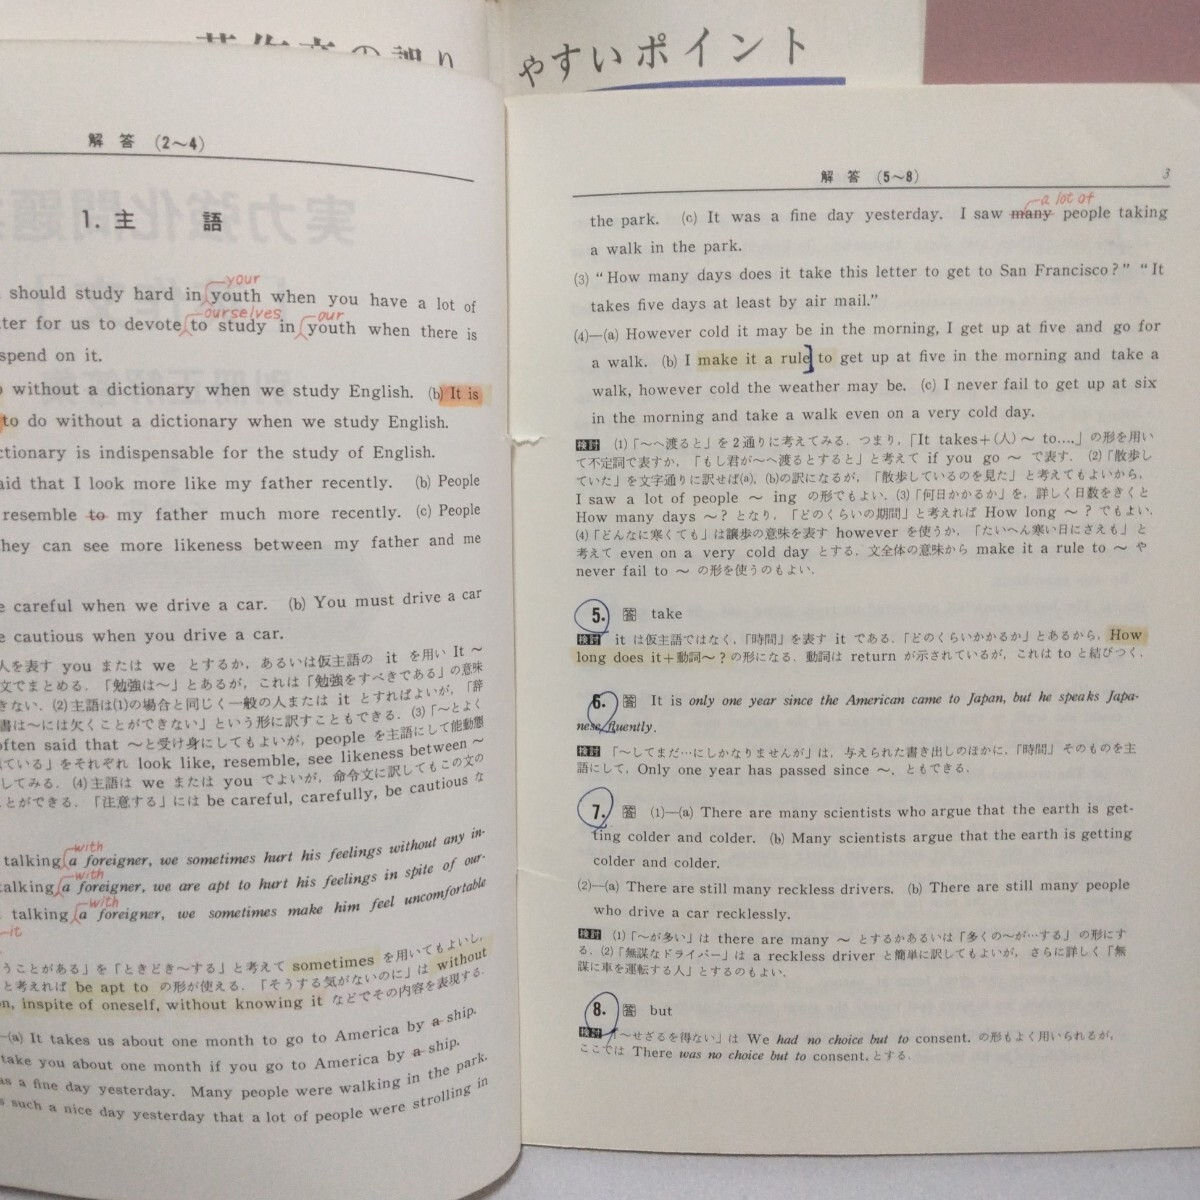 やすいポイント
解答 (2〜4)
1. 主語
your
should study hard in youth when you have a lot of
ourselves our
ter for us to devote to study in youth when there is
spend on it.
without a dictionary when we study English. (b) It is
to do without a dictionary when we study English.
ctionary is indispensable for the study of English.
aid that I look more like my father recently. (b) People
resemble to my father much more recently. (c) People
hey can see more likeness between my father and me
e careful when we drive a car. (b) You must drive a car
e cautious when you drive a car.
人を表す you または we とするか，あるいは仮主語の it を用い It 〜
文でまとめる．「勉強は〜」とあるが，これは「勉強をすべきである」の意味
きない．(2)主語は(1)の場合と同じく一般の人または it とすればよいが，「辞
書は〜には欠くことができない」という形に訳すこともできる．(3)「〜とよく
often said that 〜と受け身にしてもよいが，people を主語にして能動態
ている」をそれぞれ look like, resemble, see likeness between 〜
してみる．(4)主語は we または you でよいが，命令文に訳してもこの文の
ことができる．「注意する」には be careful, carefully, be cautious な
with
talking a foreigner, we sometimes hurt his feelings without any in-
with
talking a foreigner, we are apt to hurt his feelings in spite of our-
with
talking a foreigner, we sometimes make him feel uncomfortable
it
うことがある」を「ときどき〜する」と考えて sometimes を用いてもよいし，
と考えれば be apt to の形が使える．「そうする気がないのに」は without
on, inspite of oneself, without knowing it などでその内容を表現する．
(a) It takes us about one month to go to America by a ship.
take you about one month if you go to America by a ship.
as a fine day yesterday. Many people were walking in the park.
s such a nice day yesterday that a lot of people were strolling in
解答 (5〜8)
3
a lot of
the park. (c) It was a fine day yesterday. I saw many people taking
a walk in the park.
(3) “How many days does it take this letter to get to San Francisco?” “It
takes five days at least by air mail.”
(4)—(a) However cold it may be in the morning, I get up at five and go for
a walk. (b) I make it a rule to get up at five in the morning and take a
walk, however cold the weather may be. (c) I never fail to get up at six
in the morning and take a walk even on a very cold day.
検討 (1)「〜へ渡ると」を2通りに考えてみる．つまり，「It takes+(人)〜 to….」の形を用い
て不定詞で表すか，「もし君が〜へ渡るとすると」と考えて if you go 〜 で表す．(2)「散歩し
ていた」を文字通りに訳せば(a)，(b)の訳になるが，「散歩しているのを見た」と考えてもよいから，
I saw a lot of people 〜 ing の形でもよい．(3)「何日かかるか」を，詳しく日数をきくと
How many days 〜? となり，「どのくらいの期間」と考えれば How long 〜? でもよい．
(4)「どんなに寒くても」は譲歩の意味を表す however を使うか，「たいへん寒い日にさえも」と
考えて even on a very cold day とする．文全体の意味から make it a rule to 〜 や
never fail to 〜 の形を使うのもよい．
5. 答 take
検討 it は仮主語ではなく，「時間」を表す it である．「どのくらいかかるか」とあるから，How
long does it+動詞〜? の形になる．動詞は return が示されているが，これは to と結びつく．
6. 答 It is only one year since the American came to Japan, but he speaks Japa-
nese fluently.
検討 「〜してまだ…にしかなりませんが」は，与えられた書き出しのほかに，「時間」そのものを主
語にして，Only one year has passed since 〜, ともできる．
7. 答 (1)—(a) There are many scientists who argue that the earth is get-
ting colder and colder. (b) Many scientists argue that the earth is getting
colder and colder.
(2)—(a) There are still many reckless drivers. (b) There are still many people
who drive a car recklessly.
検討 (1)「〜が多い」は there are many 〜 とするかあるいは「多くの〜が…する」の形にす
る．(2)「無謀なドライバー」は a reckless driver と簡単に訳してもよいが，さらに詳しく「無
謀に車を運転する人」とするのもよい．
8. 答 but
検討 「〜せざるを得ない」は We had no choice but to consent. の形もよく用いられるが，
ここでは There was no choice but to consent. とする．